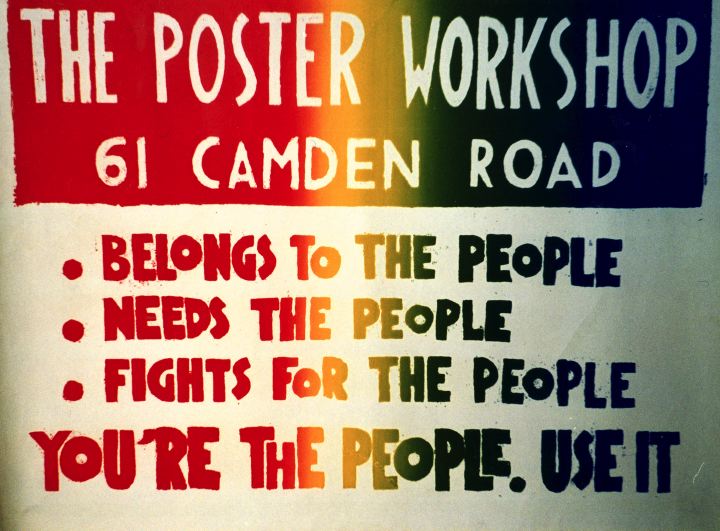 THE POSTER WORKSHOP
61 CAMDEN ROAD
• BELONGS TO THE PEOPLE
• NEEDS THE PEOPLE
• FIGHTS FOR THE PEOPLE
YOU'RE THE PEOPLE. USE IT